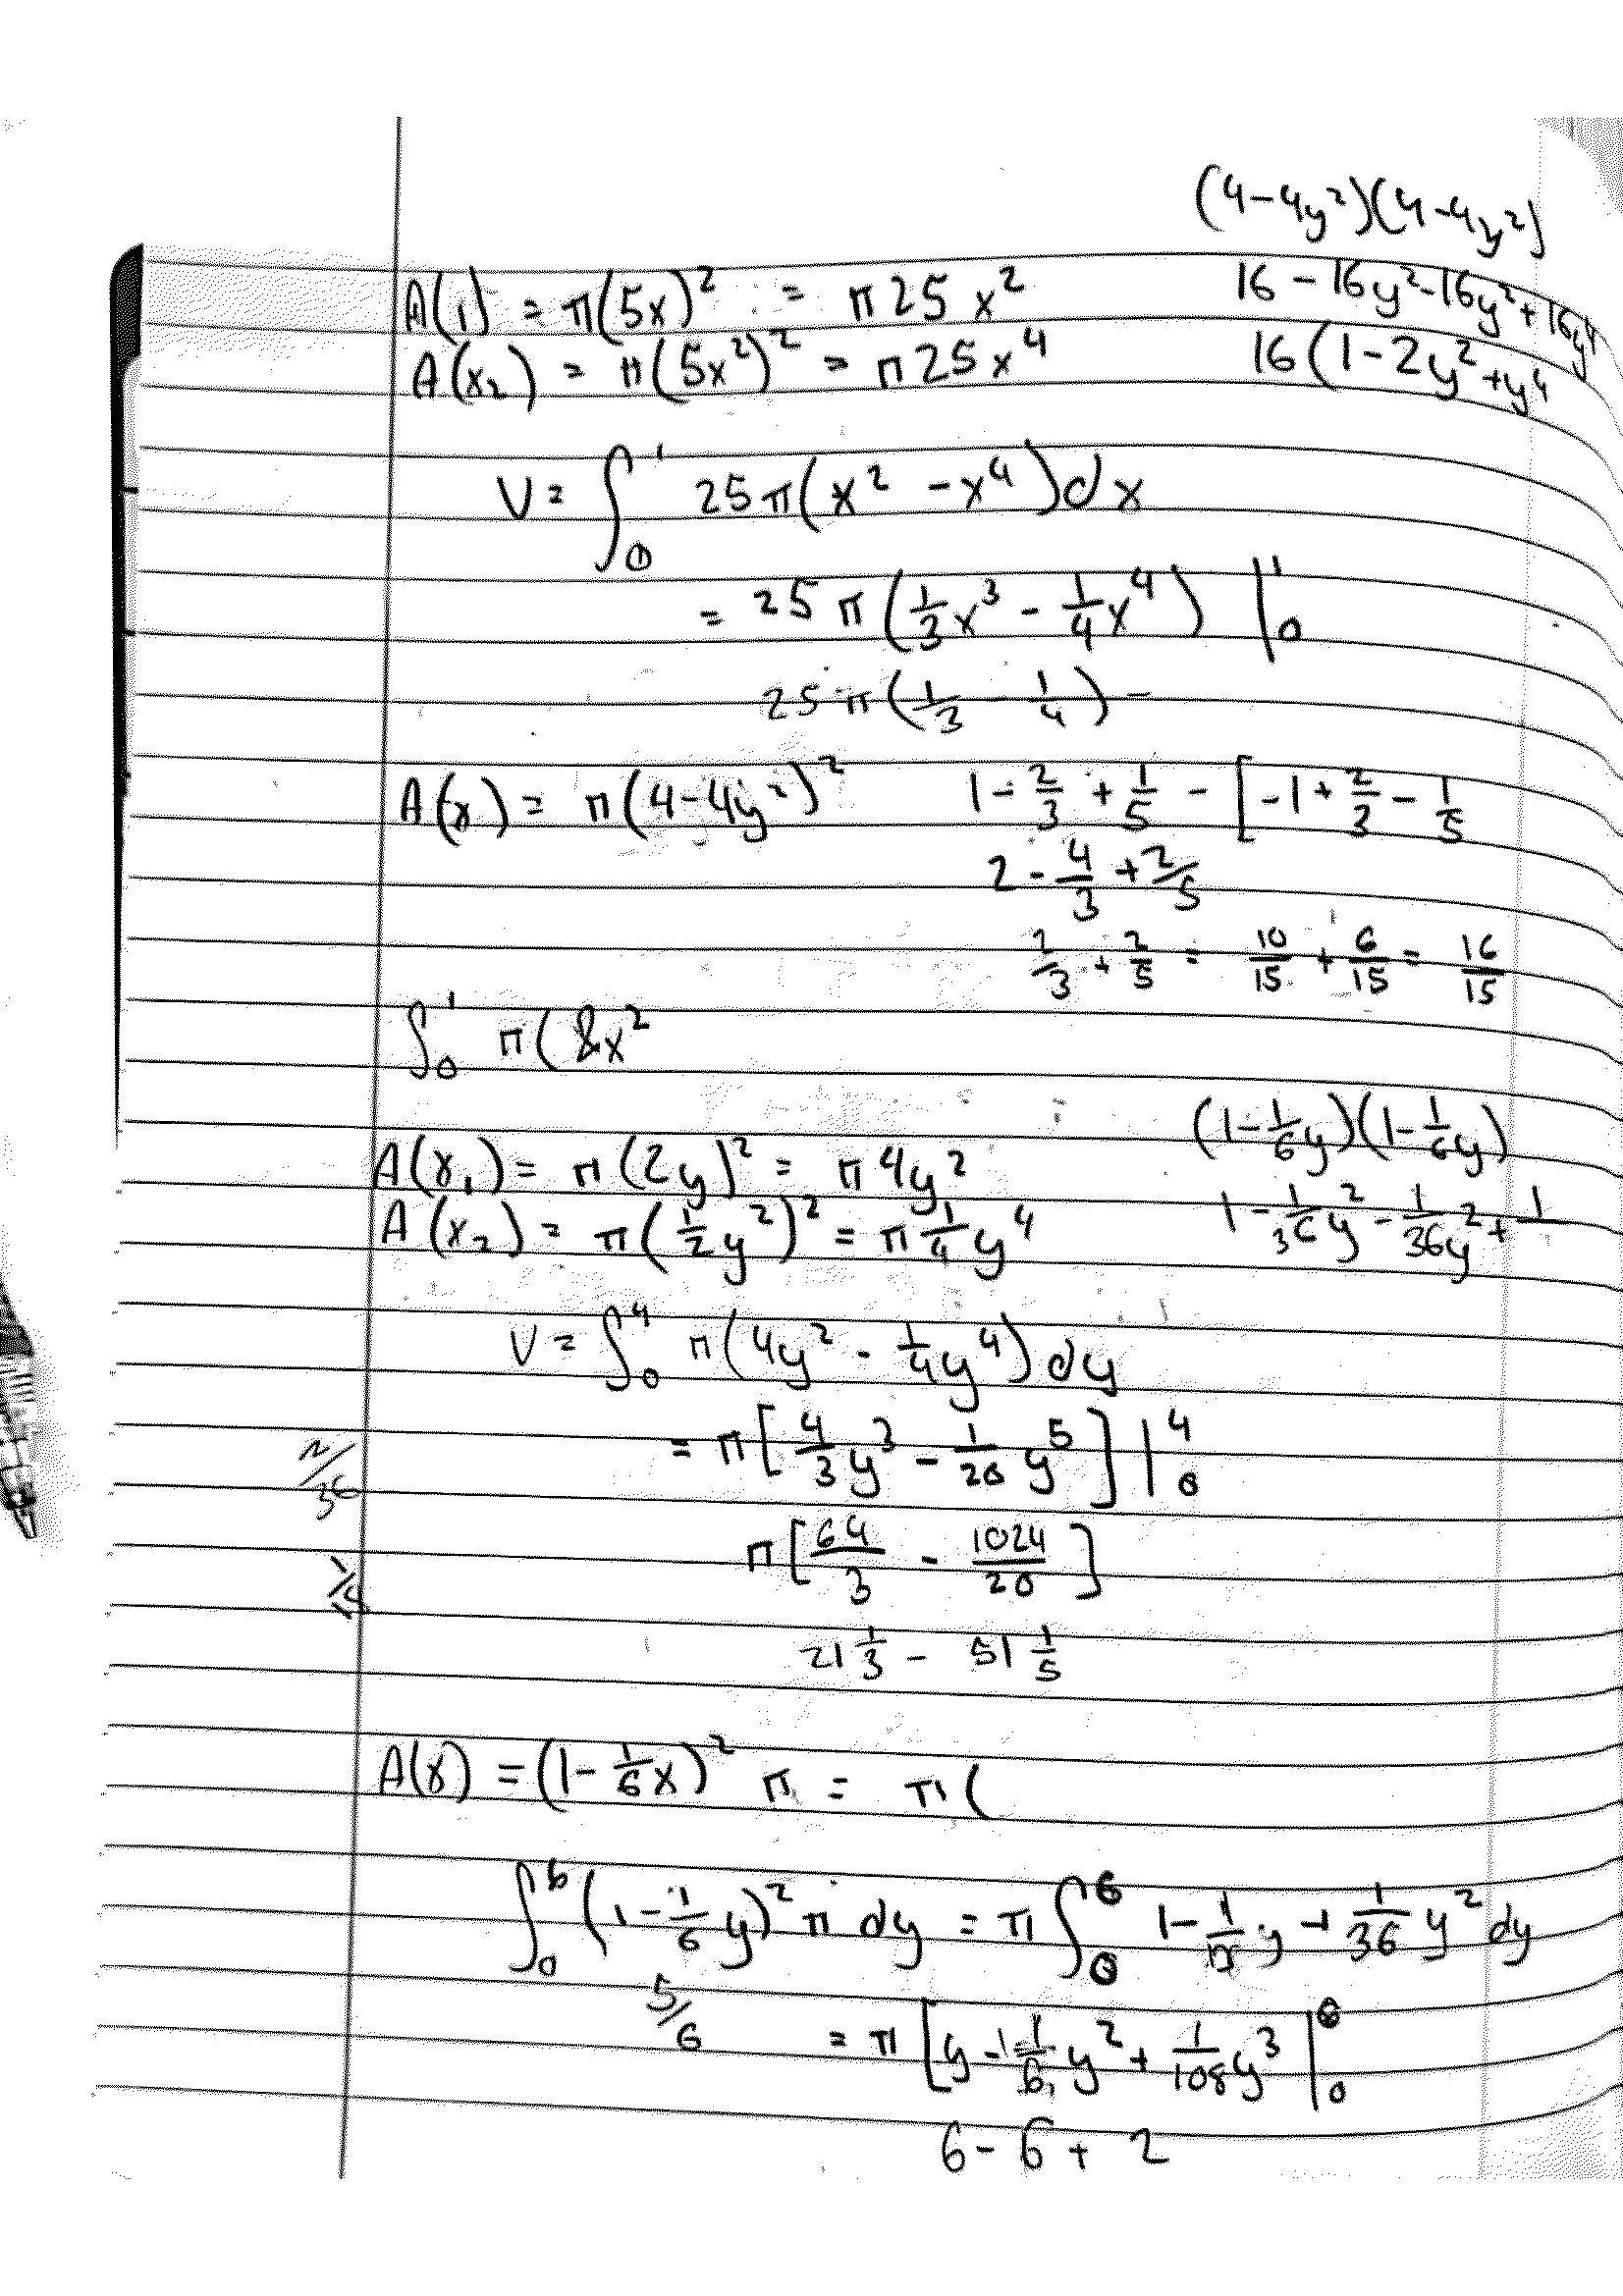 (4-4y²)(4-4y²)
A(1) = π(5x)² = π25x²
16 - 16y² - 16y² + 16y⁴
A(x₂) = π(5x²)² = π25x⁴
16(1-2y²+y⁴
V = ∫₀¹ 25π(x² - x⁴)dx
= 25π(1/3 x³ - 1/4 x⁴) |₀¹
25π(1/3 1/4) -
A(x) = π(4-4y²)²
1 - 2/3 + 1/5 - [-1 + 2/3 - 1/5
2 - 4/3 + 2/5
2/3 + 2/5 = 10/15 + 6/15 = 16/15
∫₀¹ π(8x²
(1-1/6y)(1-1/6y)
A(x₁) = π(2y)² = π4y²
1 - 1/36y² - 1/36y² + 1
A(x₂) = π(1/2y²)² = π1/4y⁴
V = ∫₀⁴ π(4y² - 1/4y⁴)dy
= π[4/3y³ - 1/20y⁵]|₀⁴
/36
π[64/3 - 1024/20]
21 1/3 - 51 1/5
A(x) = (1-1/6x)² π = π(
∫₀⁶ (1-1/6y)² π dy = π∫₀⁶ 1- y + 1/36 y² dy
5/6
= π[y - 1/6y² + 1/108y³ |₀⁶
6 - 6 + 2